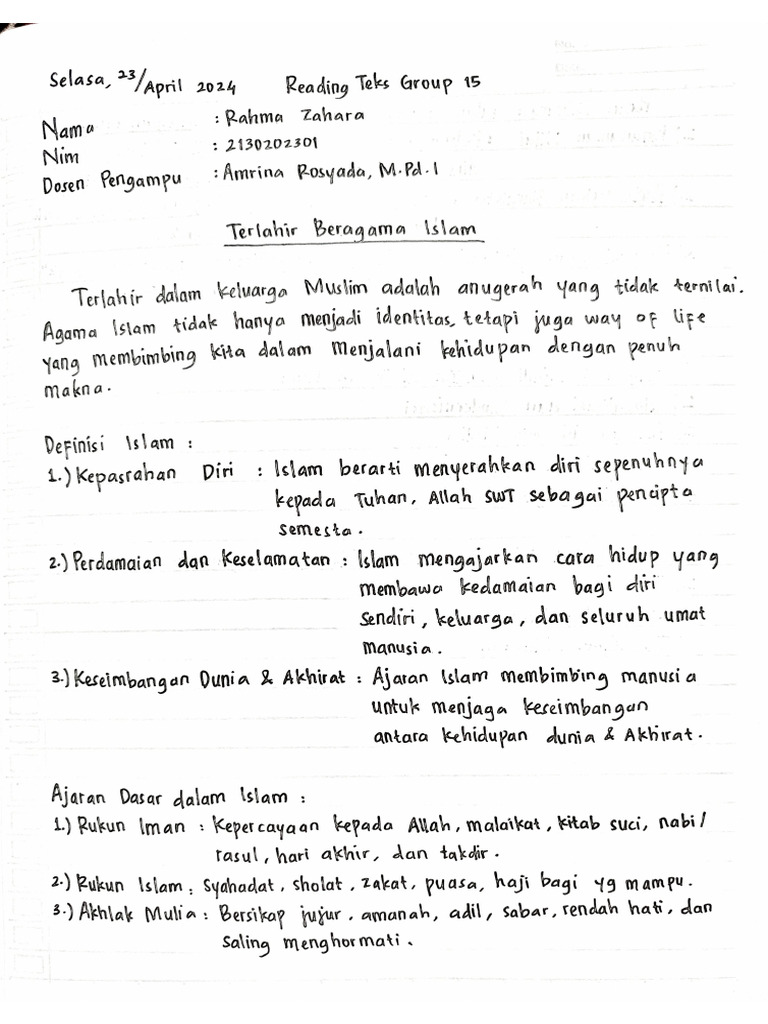 Selasa, 23/April 2024 Reading Teks Group 15
Nama : Rahma Zahara
Nim : 2130202301
Dosen Pengampu : Amrina Rosyada, M.Pd.I
Terlahir Beragama Islam
Terlahir dalam keluarga Muslim adalah anugerah yang tidak ternilai.
Agama Islam tidak hanya menjadi identitas, tetapi juga way of life
yang membimbing kita dalam menjalani kehidupan dengan penuh
makna.
Definisi Islam :
1.) Kepasrahan Diri : Islam berarti menyerahkan diri sepenuhnya
kepada Tuhan, Allah SWT sebagai pencipta
semesta.
2.) Perdamaian dan Keselamatan : Islam mengajarkan cara hidup yang
membawa kedamaian bagi diri
sendiri, keluarga, dan seluruh umat
manusia.
3.) Keseimbangan Dunia & Akhirat : Ajaran Islam membimbing manusia
untuk menjaga keseimbangan
antara kehidupan dunia & Akhirat.
Ajaran Dasar dalam Islam :
1.) Rukun Iman : Kepercayaan kepada Allah, malaikat, kitab suci, nabi/
rasul, hari akhir, dan takdir.
2.) Rukun Islam : Syahadat, sholat, zakat, puasa, haji bagi yg mampu.
3.) Akhlak Mulia : Bersikap jujur, amanah, adil, sabar, rendah hati, dan
saling menghormati.